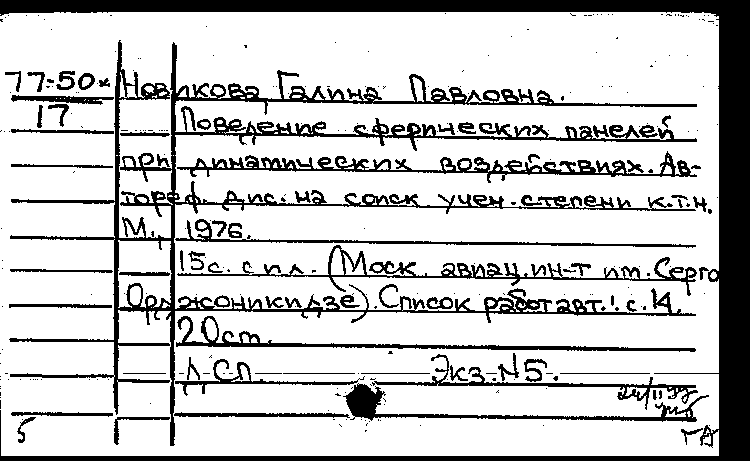 77-50* Новикова, Галина Павловна.
17
Поведение сферических панелей
при динамических воздействиях. Ав-
тореф. дис. на соиск учен. степени к.т.н.
М., 1976.
15с. с ил. (Моск. авиац. ин-т им. Серго
Орджоникидзе). Список работ авт.: с. 14.
20 cm.
ДСП. Экз. №5.
5